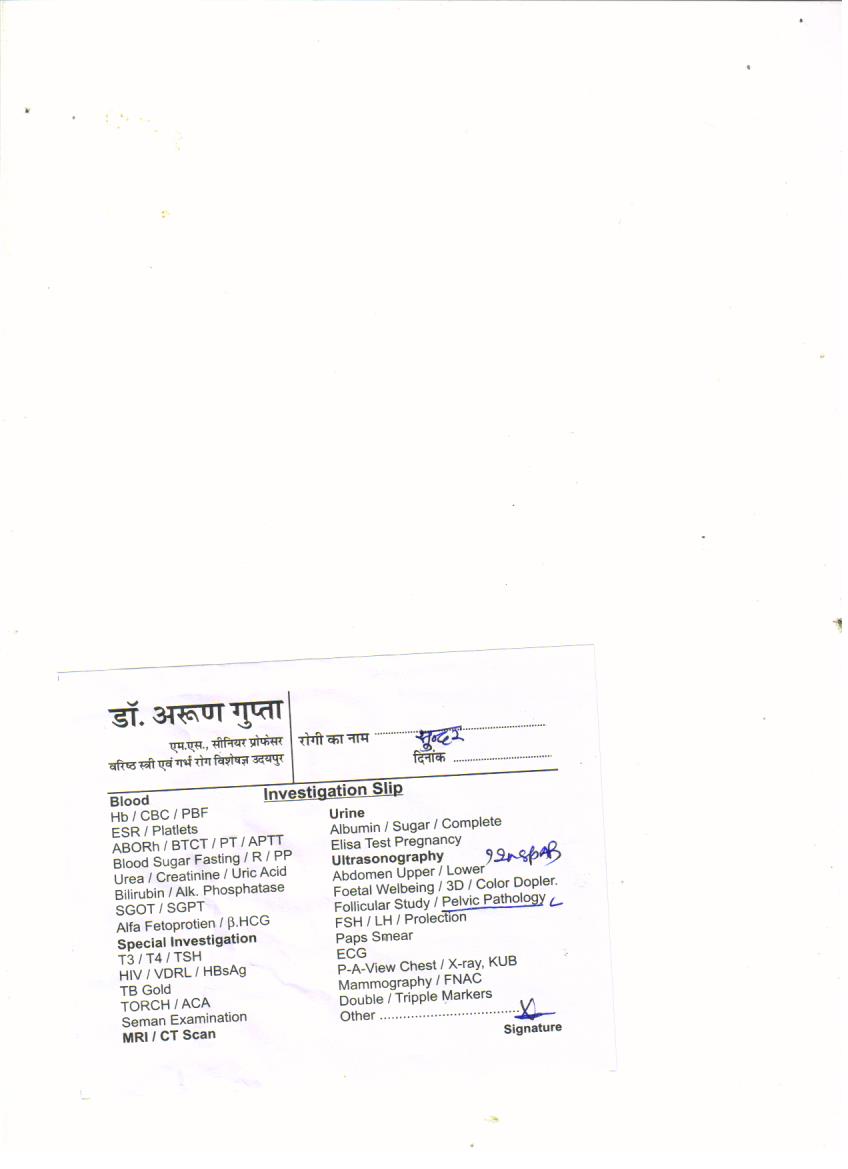 डॉ. अरूण गुप्ता
एम.एस., सीनियर प्रोफेसर
वरिष्ठ स्त्री एवं गर्भ रोग विशेषज्ञ उदयपुर
रोगी का नाम सुन्दर
दिनांक
Investigation Slip
Blood
Hb / CBC / PBF
ESR / Platlets
ABORh / BTCT / PT / APTT
Blood Sugar Fasting / R / PP
Urea / Creatinine / Uric Acid
Bilirubin / Alk. Phosphatase
SGOT / SGPT
Alfa Fetoprotien / β.HCG
Special Investigation
T3 / T4 / TSH
HIV / VDRL / HBsAg
TB Gold
TORCH / ACA
Seman Examination
MRI / CT Scan
Urine
Albumin / Sugar / Complete
Elisa Test Pregnancy
Ultrasonography
Abdomen Upper / Lower
Foetal Welbeing / 3D / Color Dopler.
Follicular Study / Pelvic Pathology
FSH / LH / Prolection
Paps Smear
ECG
P-A-View Chest / X-ray, KUB
Mammography / FNAC
Double / Tripple Markers
Other ....................................
Signature